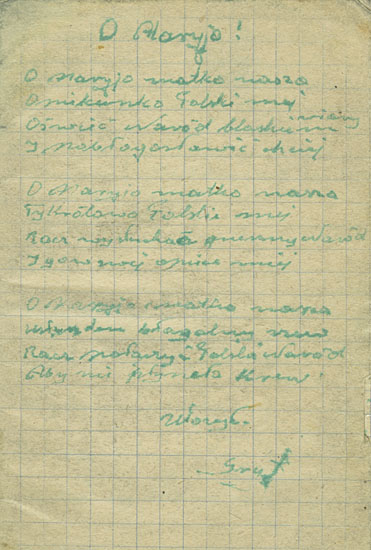 O Maryjo!
O Maryjo matko nasza
Opiekunko Polski mej
Oświeć Naród blaskiem wiary
I pobłogosławić chciej
O Maryjo matko nasza
Ty Królowo Polskie mej
Racz wysłuchać Naród
I w opiece miej
O Maryjo matko nasza
błagalny
Racz Polski Naród
Aby nie płynęła Krew!